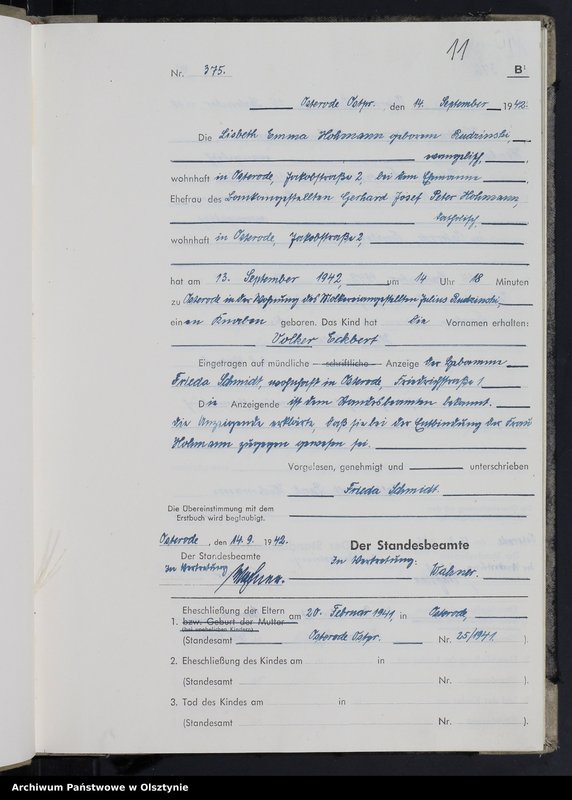 11
Nr. 375. B¹
Osterode Ostpr. den 14. September 1942.
Die Lisbeth Emma Hohmann geborene Rudzinski,
evangelisch,
wohnhaft in Osterode, Jakobstraße 2, bei dem Ehemanne
Ehefrau des Bankangestellten Gerhard Josef Peter Hohmann,
katholisch,
wohnhaft in Osterode, Jakobstraße 2,
hat am 13. September 1942, um 14 Uhr 18 Minuten
zu Osterode in der Wohnung des Molkereiangestellten Julius Rudzinski,
einen Knaben geboren. Das Kind hat die Vornamen erhalten:
Volker Eckbert
Eingetragen auf mündliche schriftliche Anzeige der Hebamme
Frieda Schmidt, wohnhaft in Osterode, Friedrichstraße 1
Die Anzeigende ist dem Standesbeamten bekannt.
Die Anzeigende erklärte, daß sie bei der Entbindung der Frau
Hohmann zugegen gewesen sei.
Vorgelesen, genehmigt und unterschrieben
Frieda Schmidt.
Die Übereinstimmung mit dem
Erstbuch wird beglaubigt.
Osterode, den 14. 9. 1942.
Der Standesbeamte
Der Standesbeamte
In Vertretung
In Vertretung:
Wahner.
1. Eheschließung der Eltern
bzw. Geburt der Mutter
(bei unehelichen Kindern)
am 20. Februar 1941, in Osterode,
(Standesamt Osterode Ostpr. Nr. 25/1941. ).
2. Eheschließung des Kindes am in
(Standesamt Nr. ).
3. Tod des Kindes am in
(Standesamt Nr. ).
Archiwum Państwowe w Olsztynie